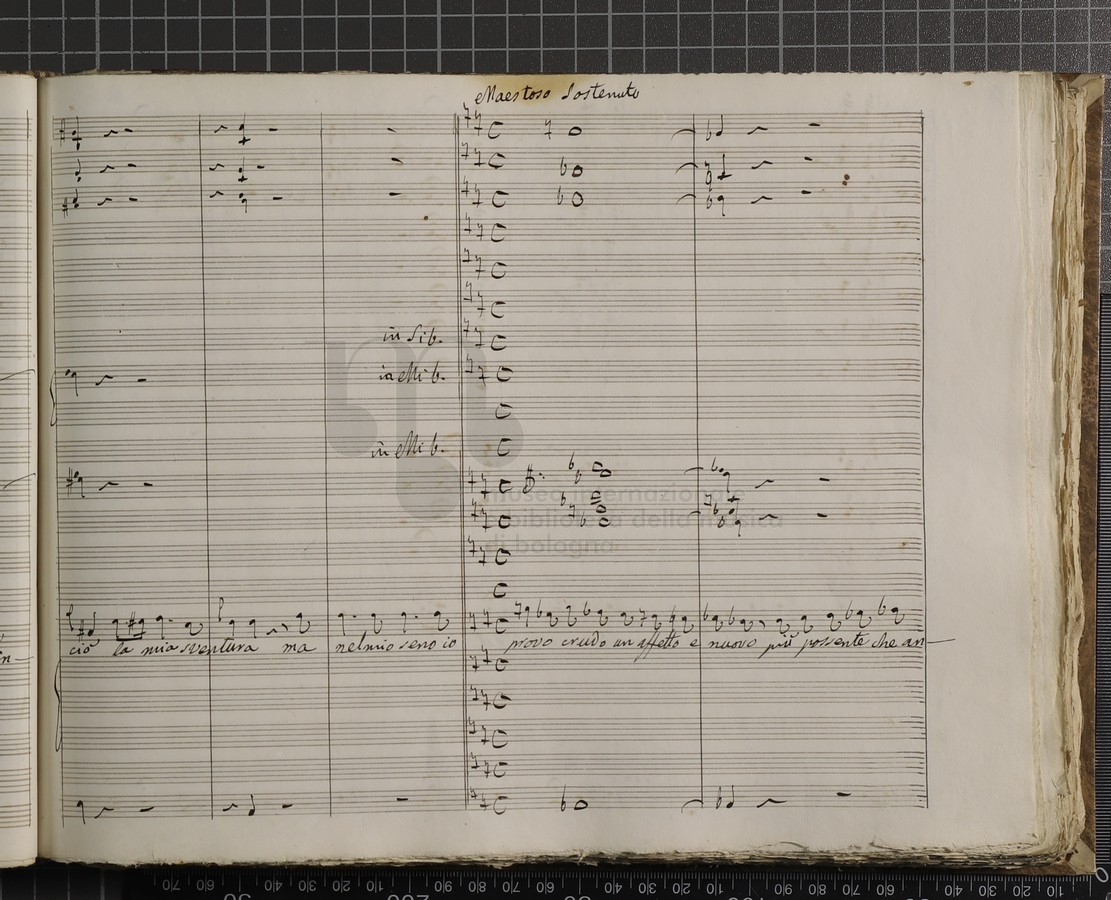 Maestoso Sostenuto
in Sib.
in Mi b.
in Mi b.
museo internazionale
e biblioteca della musica
di bologna
ciò la mia sventura ma nel mio seno io provo crudo un affetto e nuovo più possente che an
70 60 50 40 30 20 10